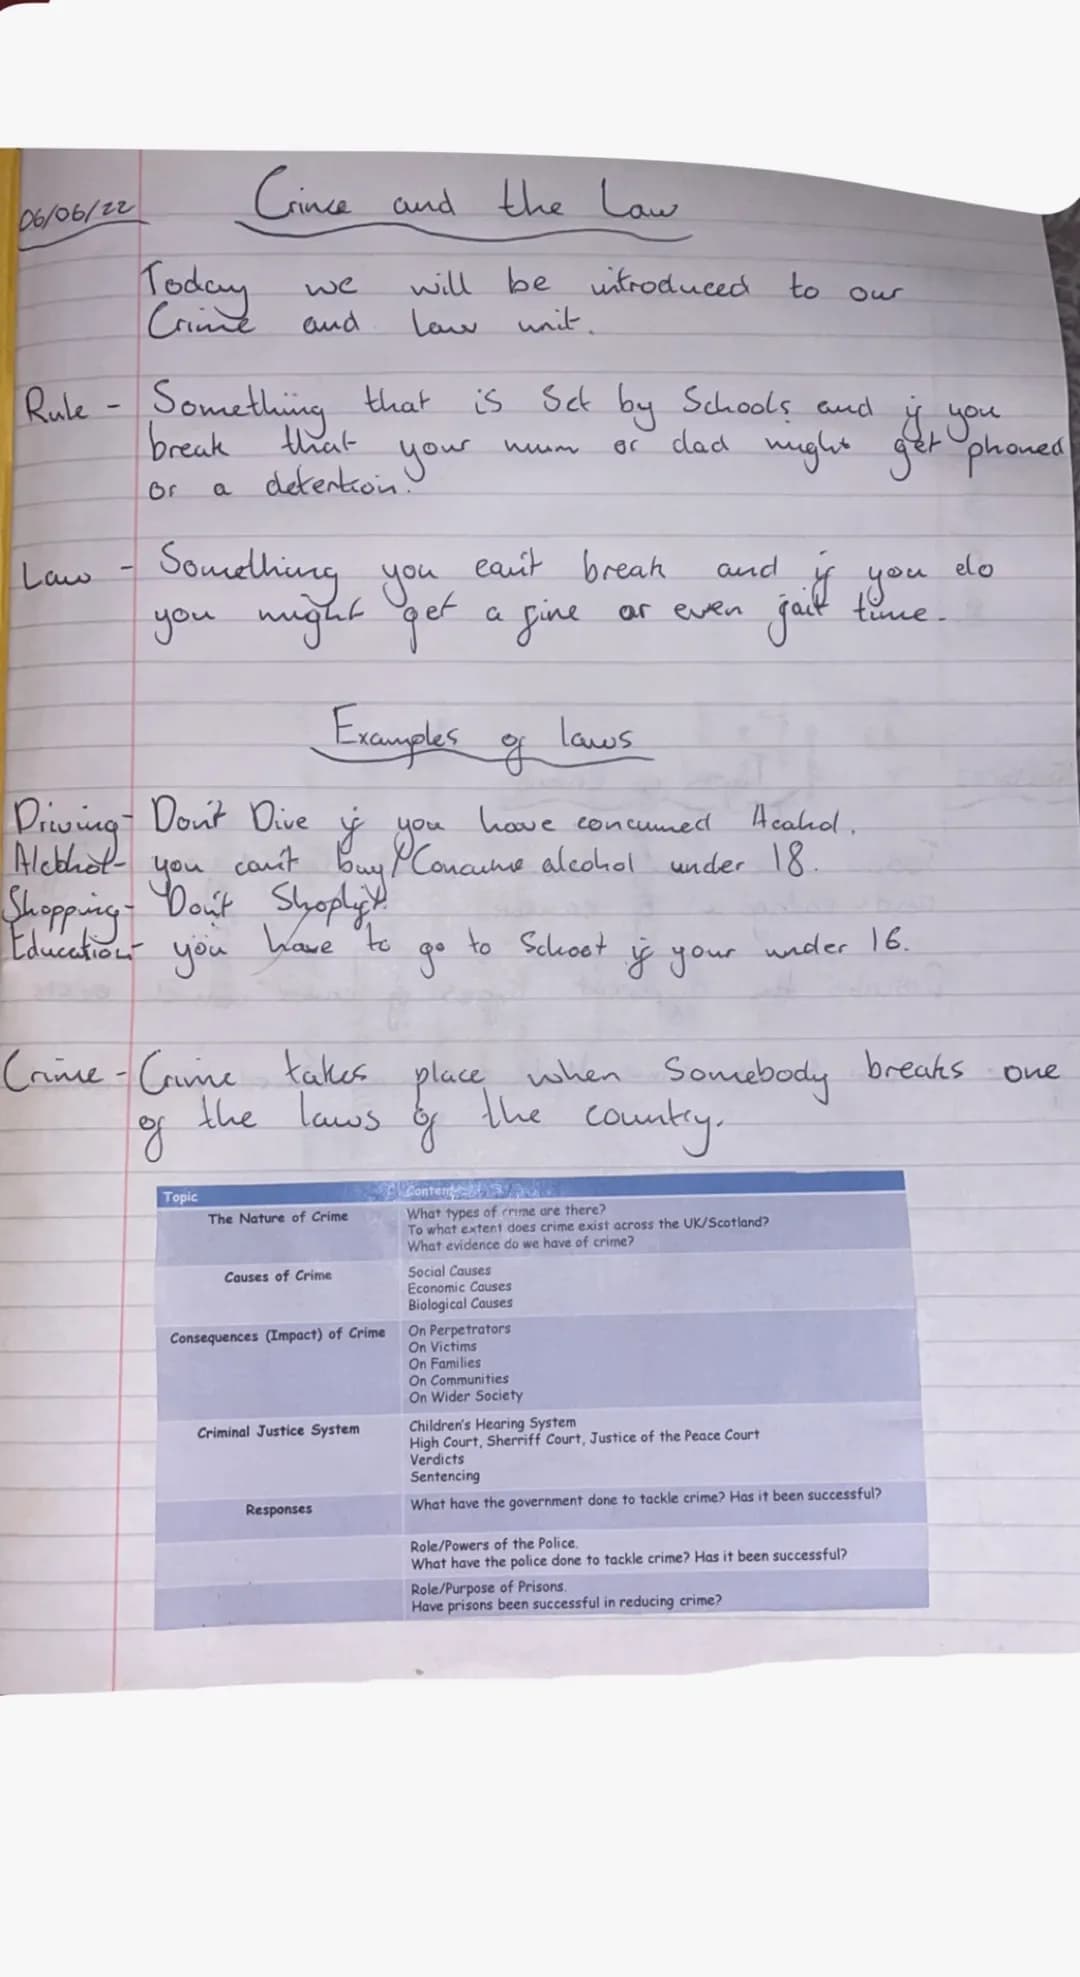 06/06/22 Crime and the Law
Today we will be introduced to our
Crime and Law unit.
Rule - Something that is Set by Schools and if you
break that your mum or dad might get phoned
or a detention.
Law - Something you can't break and if you do
you might get a fine or even jail time.
Examples of laws
Driving - Don't Dive if you have concumed Acahol.
Alcohol - you can't buy/Concume alcohol under 18.
Shopping - Don't Shoplift.
Education - you have to go to School if your under 16.
Crime - Crime takes place when Somebody breaks one
of the laws of the country.
Topic Content
The Nature of Crime What types of crime are there?
To what extent does crime exist across the UK/Scotland?
What evidence do we have of crime?
Causes of Crime Social Causes
Economic Causes
Biological Causes
Consequences (Impact) of Crime On Perpetrators
On Victims
On Families
On Communities
On Wider Society
Criminal Justice System Children's Hearing System
High Court, Sherriff Court, Justice of the Peace Court
Verdicts
Sentencing
Responses What have the government done to tackle crime? Has it been successful?
Role/Powers of the Police.
What have the police done to tackle crime? Has it been successful?
Role/Purpose of Prisons.
Have prisons been successful in reducing crime?